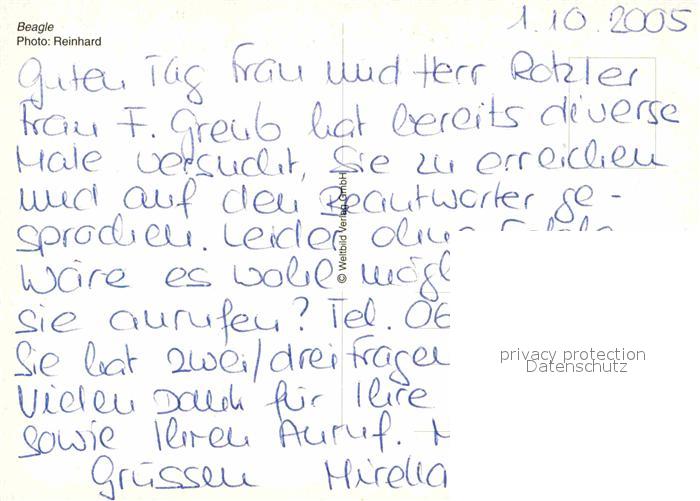 1.10.2005
Beagle
Photo: Reinhard
Guten Tag Frau und Herr Rotzler
Frau F. Greub hat bereits diverse
Male versucht, Sie zu erreichen
und auf den Beantworter ge-
sprochen. Leider ohne
Wäre es wohl mögl
sie anrufen? Tel. 06
Sie hat zwei/drei Fragen
Vielen Dank für Ihre
sowie Ihren Anruf.
Grüssen Mirella
© Weltbild Verlag GmbH
privacy protection
Datenschutz